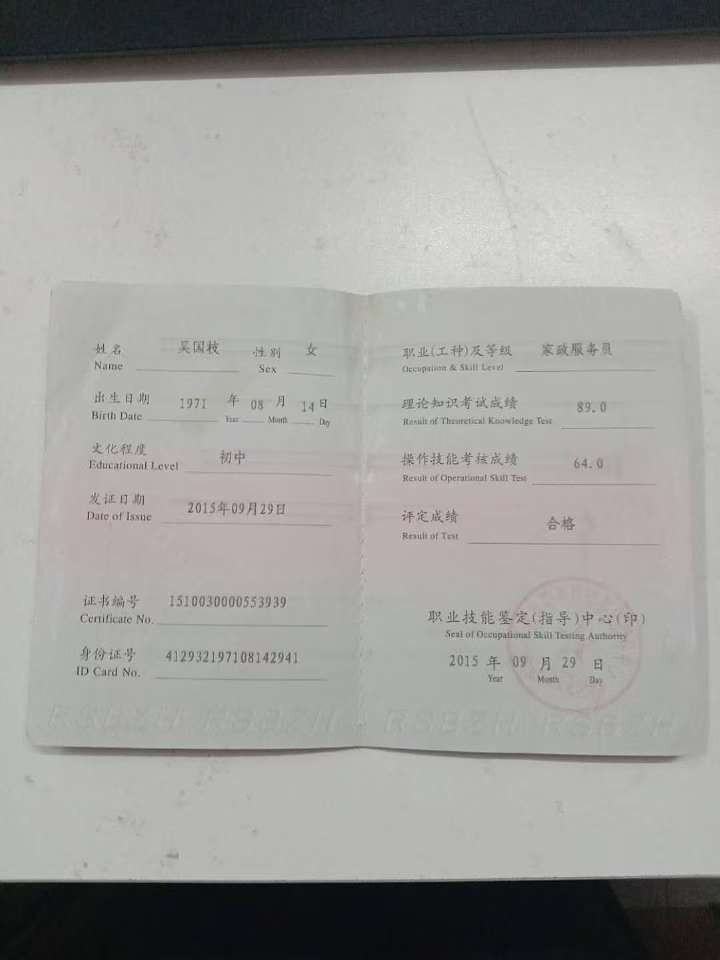 姓名 吴国枝 性别 女
Name Sex
出生日期 1971 年 08 月 14 日
Birth Date Year Month Day
文化程度 初中
Educational Level
发证日期 2015年09月29日
Date of Issue
证书编号 1510030000553939
Certificate No.
身份证号 412932197108142941
ID Card No.
职业(工种)及等级 家政服务员
Occupation & Skill Level
理论知识考试成绩 89.0
Result of Theoretical Knowledge Test
操作技能考核成绩 64.0
Result of Operational Skill Test
评定成绩 合格
Result of Test
职业技能鉴定(指导)中心(印)
Seal of Occupational Skill Testing Authority
2015 年 09 月 29 日
Year Month Day
RSBZH RSBZH RSBZH RSBZH